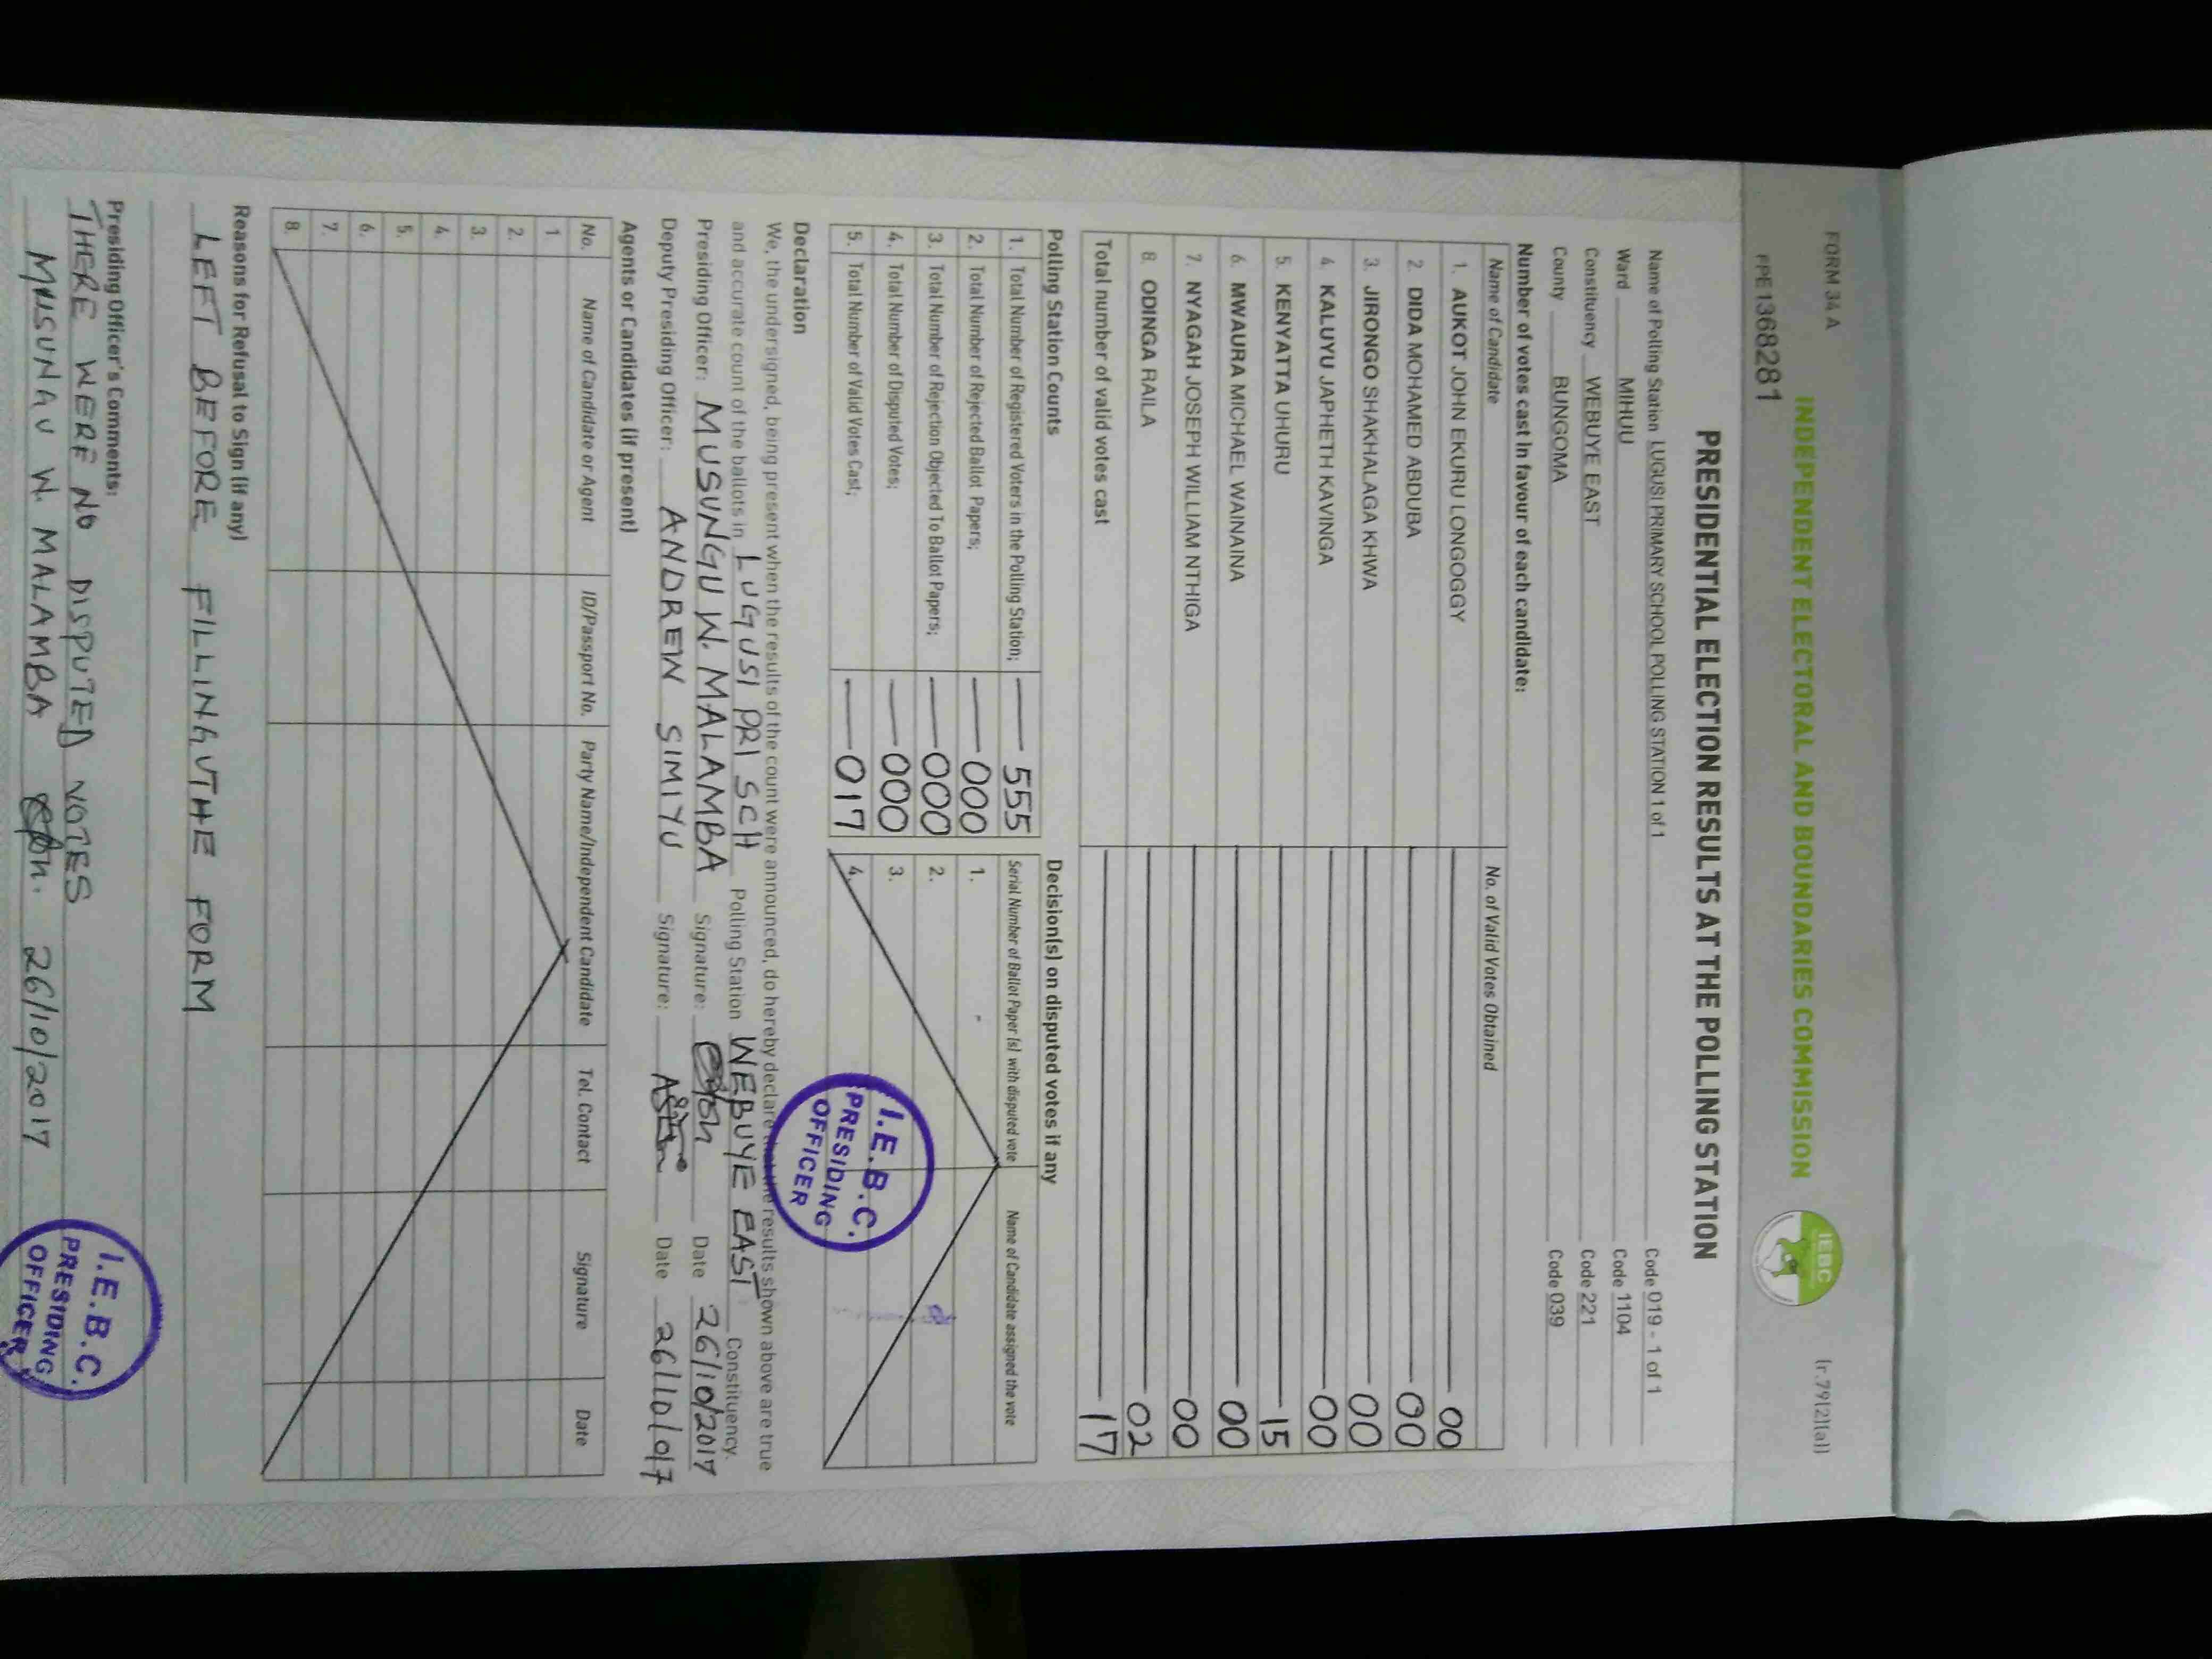 FORM 34 A
(r.79(2)(a))
INDEPENDENT ELECTORAL AND BOUNDARIES COMMISSION
IEBC
FPE1368281
PRESIDENTIAL ELECTION RESULTS AT THE POLLING STATION
Name of Polling Station LUGUSI PRIMARY SCHOOL POLLING STATION 1 of 1 Code 019 - 1 of 1
Ward MIHUU Code 1104
Constituency WEBUYE EAST Code 221
County BUNGOMA Code 039
Number of votes cast in favour of each candidate:
Name of Candidate No. of Valid Votes Obtained
1. AUKOT JOHN EKURU LONGOGGY 00
2. DIDA MOHAMED ABDUBA 00
3. JIRONGO SHAKHALAGA KHWA 00
4. KALUYU JAPHETH KAVINGA 00
5. KENYATTA UHURU 15
6. MWAURA MICHAEL WAINAINA 00
7. NYAGAH JOSEPH WILLIAM NTHIGA 00
8. ODINGA RAILA 02
Total number of valid votes cast 17
Polling Station Counts Decision(s) on disputed votes if any
1. Total Number of Registered Voters in the Polling Station; 555 Serial Number of Ballot Paper (s) with disputed vote Name of Candidate assigned the vote
2. Total Number of Rejected Ballot Papers; 000 1.
3. Total Number of Rejection Objected To Ballot Papers; 000 2.
4. Total Number of Disputed Votes; 000 3.
5. Total Number of Valid Votes Cast; 017 4.
I.E.B.C.
PRESIDING
OFFICER
Declaration
We, the undersigned, being present when the results of the count were announced, do hereby declare that the results shown above are true
and accurate count of the ballots in LUGUSI PRI SCH Polling Station WEBUYE EAST Constituency.
Presiding Officer: MUSUNGU W. MALAMBA Signature: Date 26/10/2017
Deputy Presiding Officer: ANDREW SIMIYU Signature: Date 26/10/017
Agents or Candidates (if present)
No. Name of Candidate or Agent ID/Passport No. Party Name/Independent Candidate Tel. Contact Signature Date
1.
2.
3.
4.
5.
6.
7.
8.
Reasons for Refusal to Sign (if any)
LEFT BEFORE FILLING THE FORM
Presiding Officer's Comments:
THERE WERE NO DISPUTED VOTES
MUSUNGU W. MALAMBA 26/10/2017
I.E.B.C.
PRESIDING
OFFICER